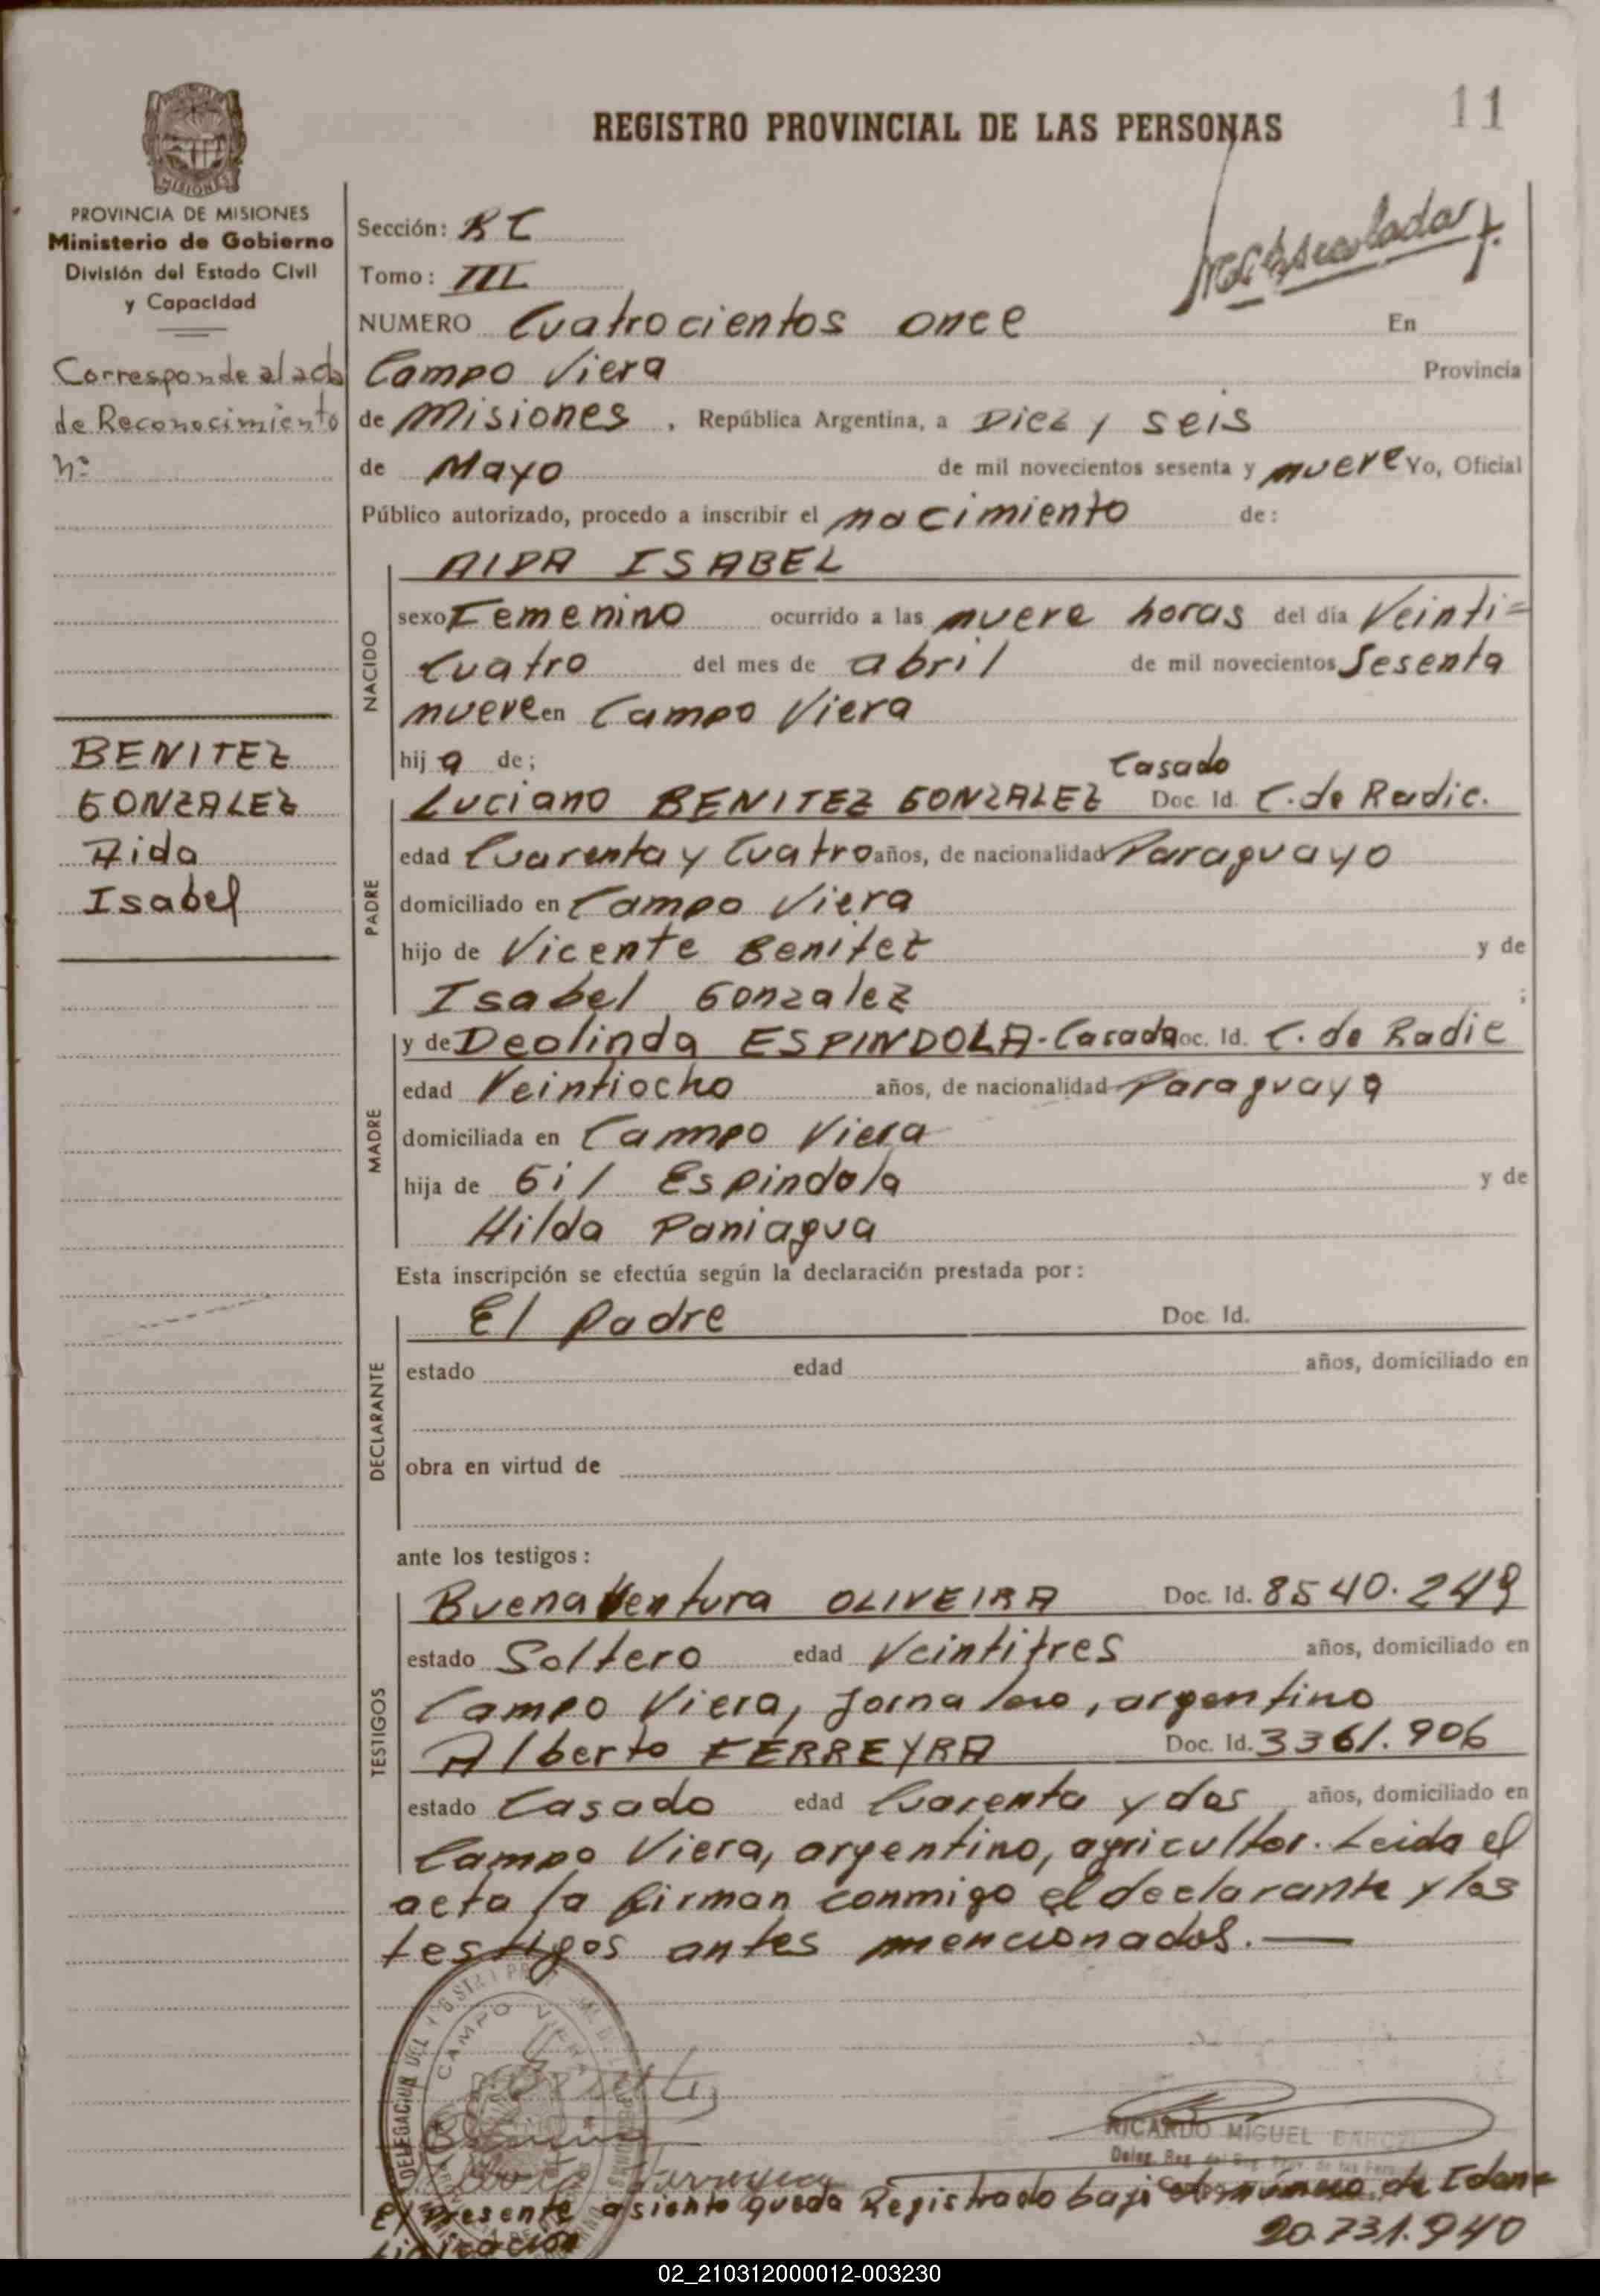 11
REGISTRO PROVINCIAL DE LAS PERSONAS
MISIONES
PROVINCIA DE MISIONES
Ministerio de Gobierno
División del Estado Civil
y Capacidad
Corresponde al acta
de Reconocimiento
nº
BENITEZ
GONZALEZ
Aida
Isabel
Sección: RC
Tomo: III
NUMERO Cuatrocientos once En
Campo Viera Provincia
de Misiones, República Argentina, a Diez y seis
de Mayo de mil novecientos sesenta y nueve Yo, Oficial
Público autorizado, procedo a inscribir el nacimiento de:
NACIDO
AIDA ISABEL
sexo Femenino ocurrido a las nueve horas del día Veinti=
cuatro del mes de abril de mil novecientos Sesenta
nueve en Campo Viera
hija de;
Casado
PADRE
Luciano BENITEZ GONZALEZ Doc. Id. C. de Radic.
edad Cuarenta y Cuatro años, de nacionalidad Paraguayo
domiciliado en Campo Viera
hijo de Vicente Benitez y de
Isabel Gonzalez ;
MADRE
y de Deolinda ESPINDOLA-Casada Doc. Id. C. de Radic
edad Veintiocho años, de nacionalidad Paraguaya
domiciliada en Campo Viera
hija de Gil Espindola y de
Hilda Paniagua
Esta inscripción se efectúa según la declaración prestada por:
DECLARANTE
El padre Doc. Id.
estado edad años, domiciliado en
obra en virtud de
ante los testigos:
TESTIGOS
Buenaventura OLIVEIRA Doc. Id. 8540.249
estado Soltero edad Veintitres años, domiciliado en
Campo Viera, jornalero, argentino
Alberto FERREYRA Doc. Id. 3361.906
estado Casado edad Cuarenta y dos años, domiciliado en
Campo Viera, argentino, agricultor. Leida el
acta la firman conmigo el declarante y los
testigos antes mencionados.
DELEGACION DEL
CAMPO VIERA
RICARDO MIGUEL
El presente asiento queda Registrado bajo el número de Iden=
tificación 20.731.940
02_210312000012-003230